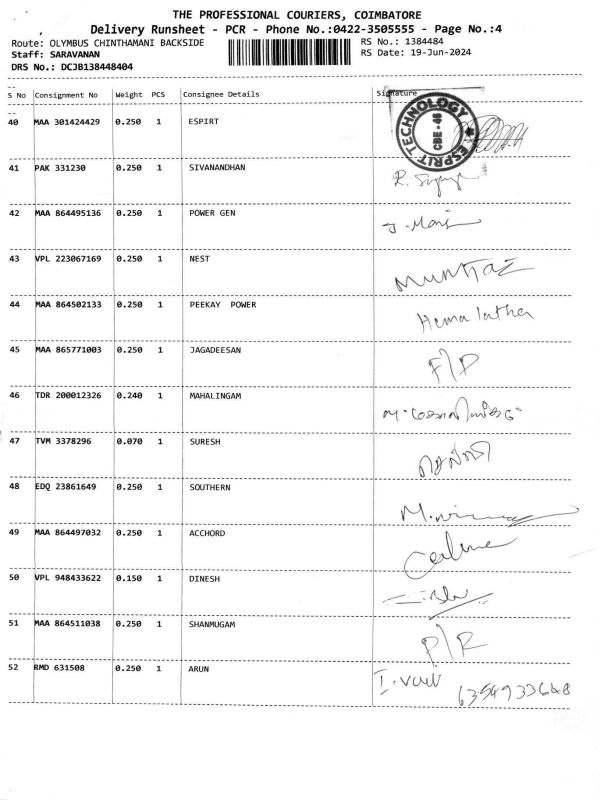 THE PROFESSIONAL COURIERS, COIMBATORE
Delivery Runsheet - PCR - Phone No.:0422-3505555 - Page No.:4
Route: OLYMBUS CHINTHAMANI BACKSIDE RS No.: 1384484
Staff: SARAVANAN RS Date: 19-Jun-2024
DRS No.: DCJB138448404
S No Consignment No Weight PCS Consignee Details Signature
40 MAA 301424429 0.250 1 ESPIRT ESPRIT TECHNOLOGY CBE - 45
41 PAK 331230 0.250 1 SIVANANDHAN
42 MAA 864495136 0.250 1 POWER GEN
43 VPL 223067169 0.250 1 NEST MUMTAZ
44 MAA 864502133 0.250 1 PEEKAY POWER Hema latha
45 MAA 865771003 0.250 1 JAGADEESAN F/D
46 TDR 200012326 0.240 1 MAHALINGAM
47 TVM 3378296 0.070 1 SURESH
48 EDQ 23861649 0.250 1 SOUTHERN
49 MAA 864497032 0.250 1 ACCHORD
50 VPL 948433622 0.150 1 DINESH
51 MAA 864511038 0.250 1 SHANMUGAM P/R
52 RMD 631508 0.250 1 ARUN